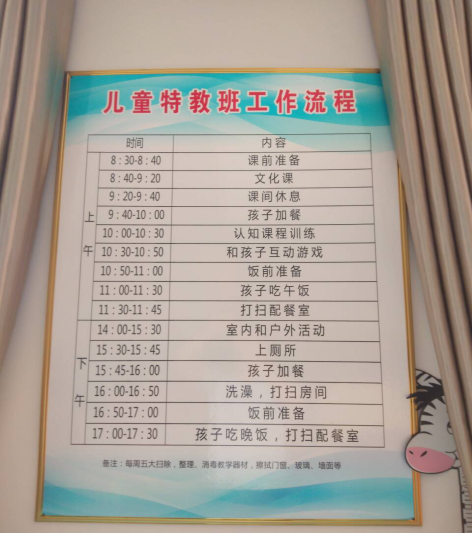 儿童特教班工作流程
时间 内容
上午
8:30-8:40 课前准备
8:40-9:20 文化课
9:20-9:40 课间休息
9:40-10:00 孩子加餐
10:00-10:30 认知课程训练
10:30-10:50 和孩子互动游戏
10:50-11:00 饭前准备
11:00-11:30 孩子吃午饭
11:30-11:45 打扫配餐室
下午
14:00-15:30 室内和户外活动
15:30-15:45 上厕所
15:45-16:00 孩子加餐
16:00-16:50 洗澡，打扫房间
16:50-17:00 饭前准备
17:00-17:30 孩子吃晚饭，打扫配餐室
备注：每周五大扫除，整理、消毒教学器材，擦拭门窗、玻璃、墙面等